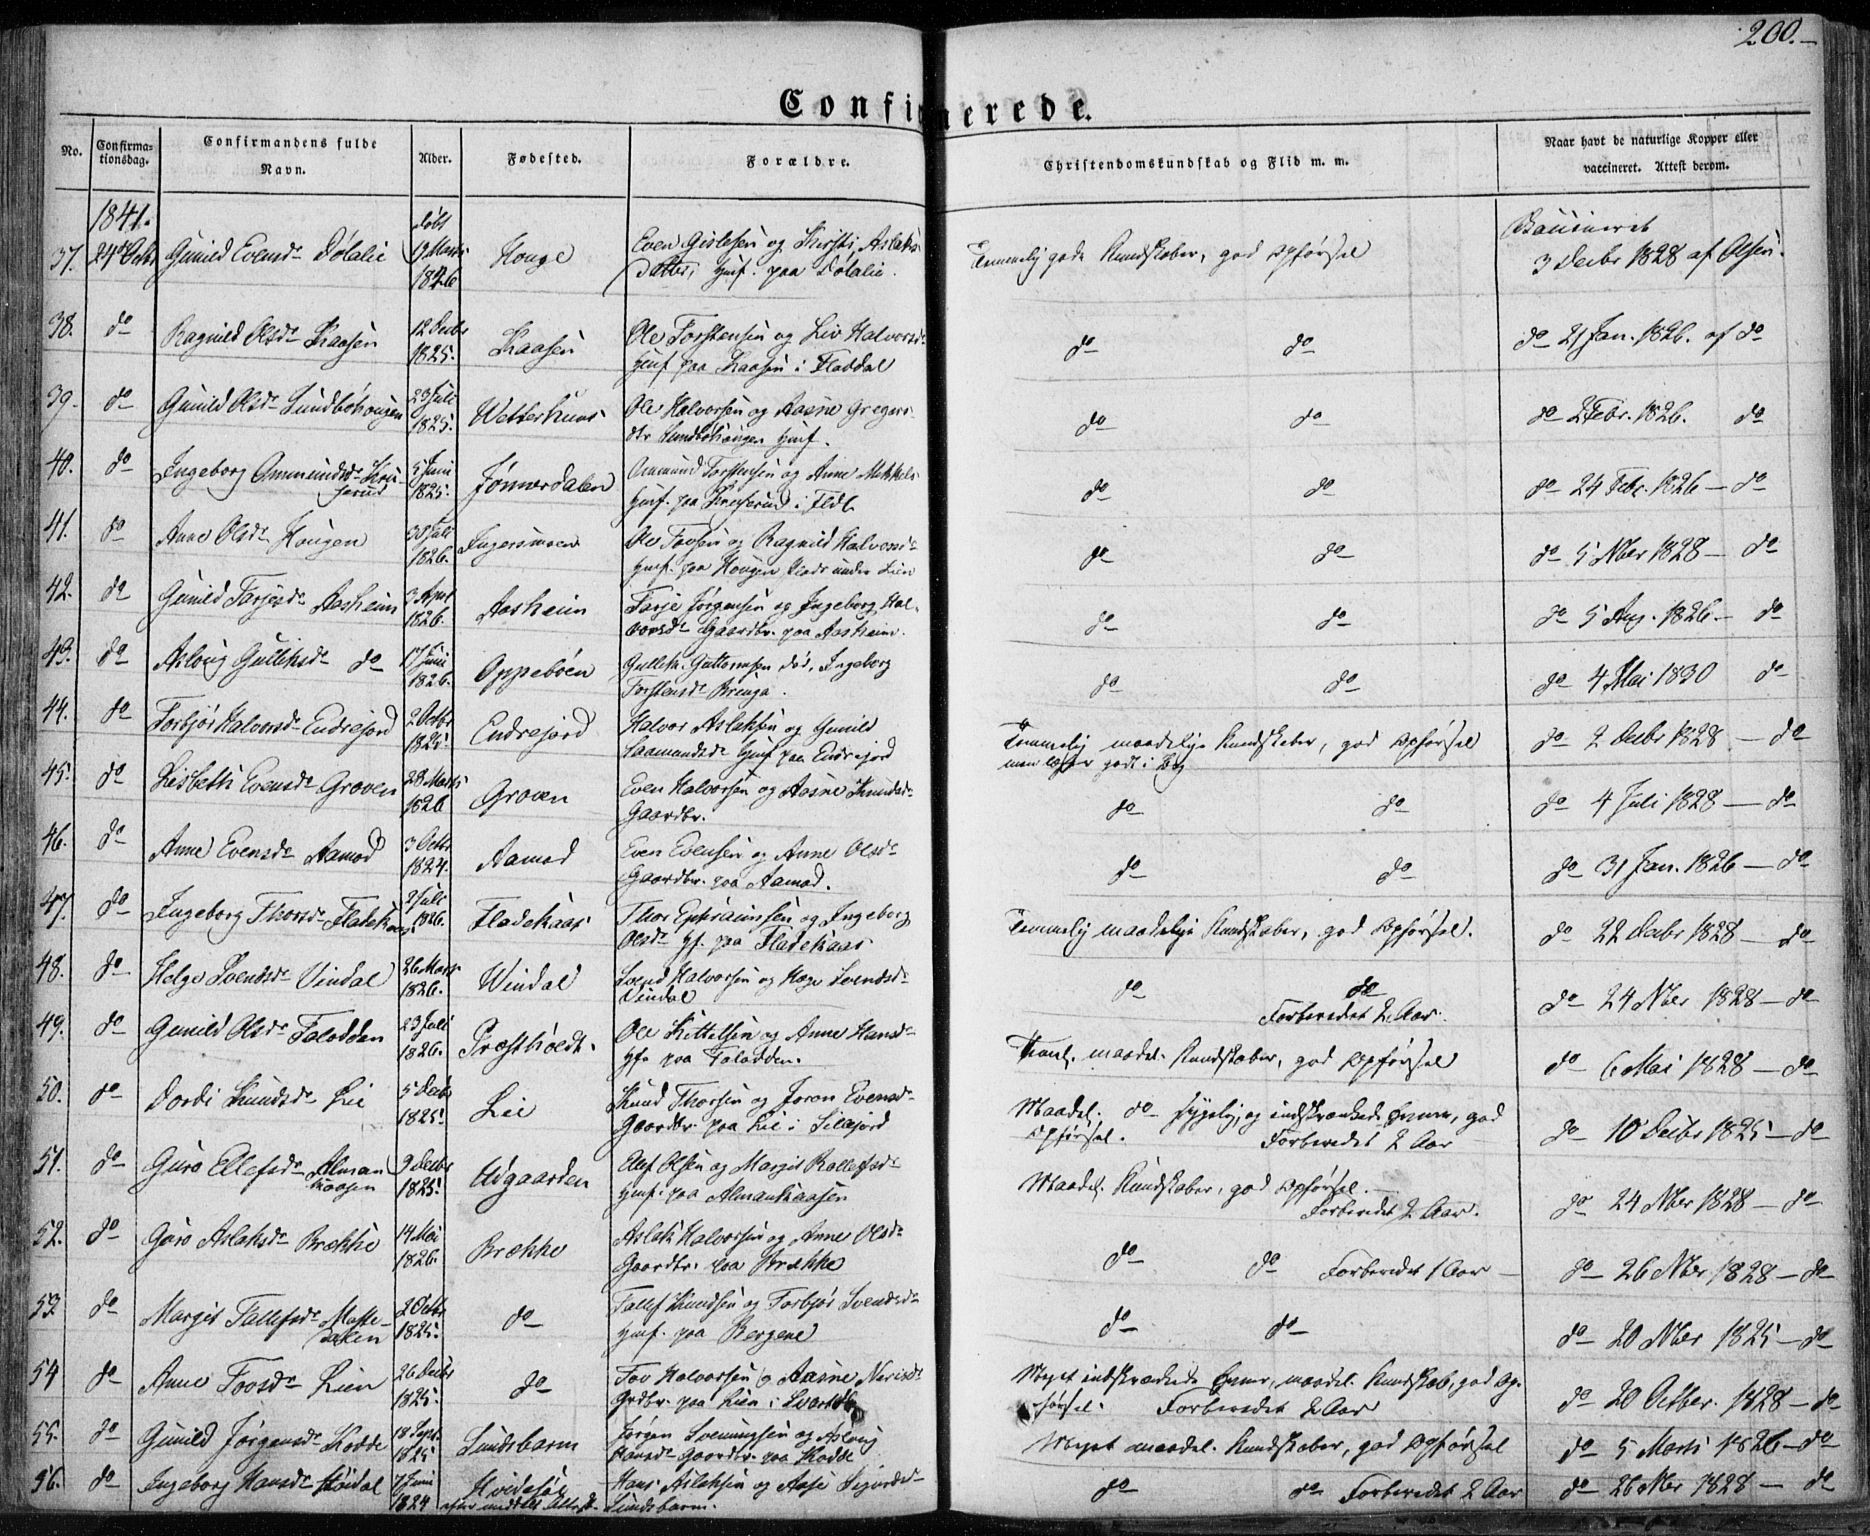 200.
Confirmerede.
No. Confirmationsdag. Confirmandens fulde Navn. Alder. Fødested. Forældre. Christendomskundskab og Flid m. m. Naar havt de naturlige Kopper eller vaccineret. Attest derom.
1841. døbt Vaccineret
37. 24de Octbr Gunild Evensdr Dølalie 19 Marts 1826 Houge Even Gislesen og Kirsti Aslaks Datter, Hmf. paa Dølalie. Temmelig gode Kundskaber, god Opførsel 3 Decbr 1828 af Olsen.
38. do Ragnild Olsdr Kaasen 12 Decbr 1825. Kaasen Ole Torstensen og Liv Halvorsdr Hmf paa Kaasen i Flatdal do do do 21 Jan. 1826. af do
39. do Gunild Olsdr Sundbøhougen 23 Juli 1825. Wetterhuus Ole Halvorsen og Aasne Gregarsdtr Sundbøhougen Hmf. do do do 2 Febr. 1826. do
40. do Ingeborg Ammundsdr 5 Juni 1825. Jønnerdalen Ammund Torstensen og Anne Mikkels Hmf. paa i Fldl. do do do 24 Febr. 1826 — do
41. do Anne Olsdr Hougen 30 Juli 1826. Ingersmoen Ole Tovsen og Ragnild Halvorsdr Hmf. paa Hougen Plads under Lien do do do 5 Nber 1828 — do
42. do Gunild Tarjesdr Aasheim 3 April 1826. Aasheim Tarje Jørgensen og Ingeborg Halvorsdr Gaardbr. paa Aasheim. do do do 5 Aug. 1826 — do
43. do Asloug Gulliksdr do 17 Juni 1826. Oppeboen Gullik Guttormsen død, Ingeborg Torstensdr Brenga. do do do 4 Mai 1830 do
44. do Torbjør Halvorsdr Endrejord 2 Octbr 1825. Endrejord Halvor Aslaksen og Gunild Saamundsdr Hmf paa Endrejord Temmelig maadelige Kundskaber, god Opførsel men læser godt i Bog do 2 Decbr 1828 — do
45. do Lisbeth Evensdr Groven 28 Marts 1826 Groven Even Halvorsen og Aasne Knudsdr Gaardbr. do do do 4 Juli 1828 — do
46. do Anne Evensdr Aamod 3 Octbr 1824. Aamod Even Evensen og Anne Olsdr Gaardbr. paa Aamod. do do do 31 Jan. 1826 — do
47. do Ingeborg Thorsdr Fladekaas 2 Juli 1826. Fladekaas Thor Ephraimsen og Ingeborg Olsdr Hf. paa Fladekaas Temmelig maadelige Kundskaber, god Opførsel. do 22 Decbr 1828 — do
48. do Helge Svendsdr Vindal 26 Marts 1826. Windal Svend Halvorsen og Hæge Svendsdr Vindal do do Forberedet 2 Aar. do 24 Nber 1828 — do
49. do Gunild Olsdr Taladden 23 Juli 1826. Præstholdt. Ole Kittelsen og Anne Hansdr Hf. paa Taladden. Teml. maadel. Kundskaber, god Opførsel do 6 Mai 1828 — do
50. do Dordi Knudsdr Lie 5 Decbr 1825. Lie Knud Thorsen og Joron Evensdr Gaardbr. paa Lie i Sillejord Maadel. do sygelig, og indskrænkede Evner, god Opførsel. Forberedet 2 Aar do 10 Decbr 1825 — do
51. do Guro Ellefsdr Almankaasen 9 Decbr 1825. Udgaarden Ellef Olsen og Margit Rollefsdr Hmf. paa Almankaasen Maadel. Kundskaber, god Opførsel. — Forberedet 2 Aar. do 24 Nber 1828 — do
52. do Guro Aslaksdr Brække 14 Mai 1826. Brække Aslak Halvorsen og Anne Olsdr Gaardbr. paa Brække do do Forberedet 1 Aar — do 26 Nber 1828 — do
53. do Margit Tallefsdr 2 Octbr 1825. do Tallef Knudsen og Torbjør Svendsdr Hmf. paa Bergene do do do 20 Nber 1825 — do
54 do Anne Tovsdr Lien 26 Decbr 1825. do Tov Halvorsen og Aasne Nerisdr Grdbr. paa Lien i Svartdl. Meget indskrænkede Evner, maadel. Kundskab, god Opførsel. Forberedet 2 Aar do 20 Octber. 1828 — do
55. do Gunild Jørgensdr Kodde 18 Septr 1825 Sundsbarm Jørgen Svenungsen og Asloug Hansdr Gaardbr. paa Kodde Meget maadel. Kundskaber, god Opførsel do 5 Marts 1826 — do
56. do Ingeborg Hansdr Høidal 7 Juni 1824 Hvideseid efter meddelt Attest Hans Aslaksen og Aase Sigurdsdr Sundsbarm. do do Forberedet 2 Aar do 26 Nber 1828 — do